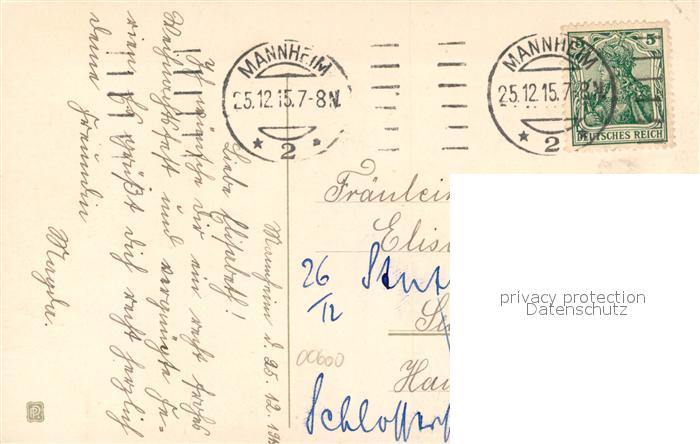 MANNHEIM
25.12.15.7-8N.
* 2 a
MANNHEIM
25.12.15.7-8N.
* 2
5
DEUTSCHES REICH
Mannheim d. 25. 12. 19
Liebe Elisabeth!
Ich wünsche Dir ein recht frohes
Weihnachtsfest und vergnügte Fe-
rien. Es grüßt dich recht herzlich
deine Freundin
Magda.
Fräulein
Elis
26
12
Stutt
Hau
Schlosserst
00600
privacy protection
Datenschutz